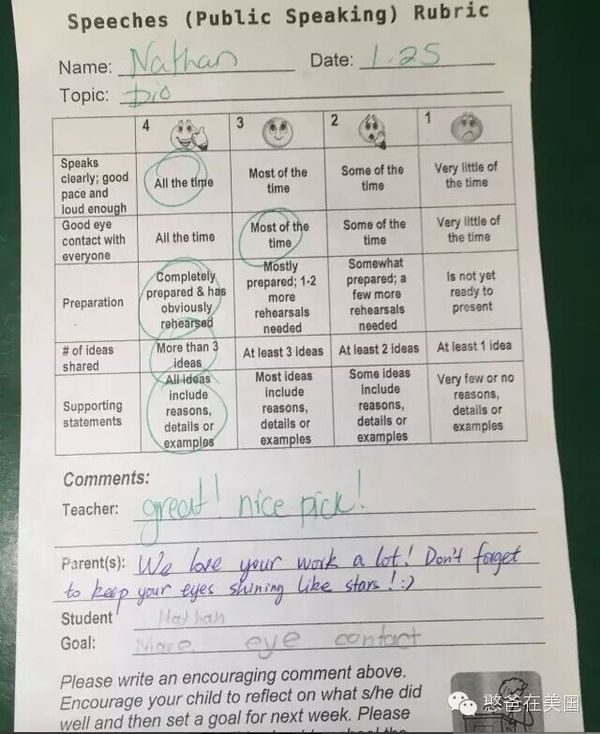 Speeches (Public Speaking) Rubric
Name: Nathan Date: 1.25
Topic: Dio
4 3 2 1
Speaks clearly; good pace and loud enough All the time Most of the time Some of the time Very little of the time
Good eye contact with everyone All the time Most of the time Some of the time Very little of the time
Preparation Completely prepared & has obviously rehearsed Mostly prepared; 1-2 more rehearsals needed Somewhat prepared; a few more rehearsals needed Is not yet ready to present
# of ideas shared More than 3 ideas At least 3 ideas At least 2 ideas At least 1 idea
Supporting statements All ideas include reasons, details or examples Most ideas include reasons, details or examples Some ideas include reasons, details or examples Very few or no reasons, details or examples
Comments:
Teacher: great! nice pick!
Parent(s): We love your work a lot! Don't forget
to keep your eyes shining like stars! :)
Student Nathan
Goal: More eye contact
Please write an encouraging comment above.
Encourage your child to reflect on what s/he did
well and then set a goal for next week. Please
憨爸在美国